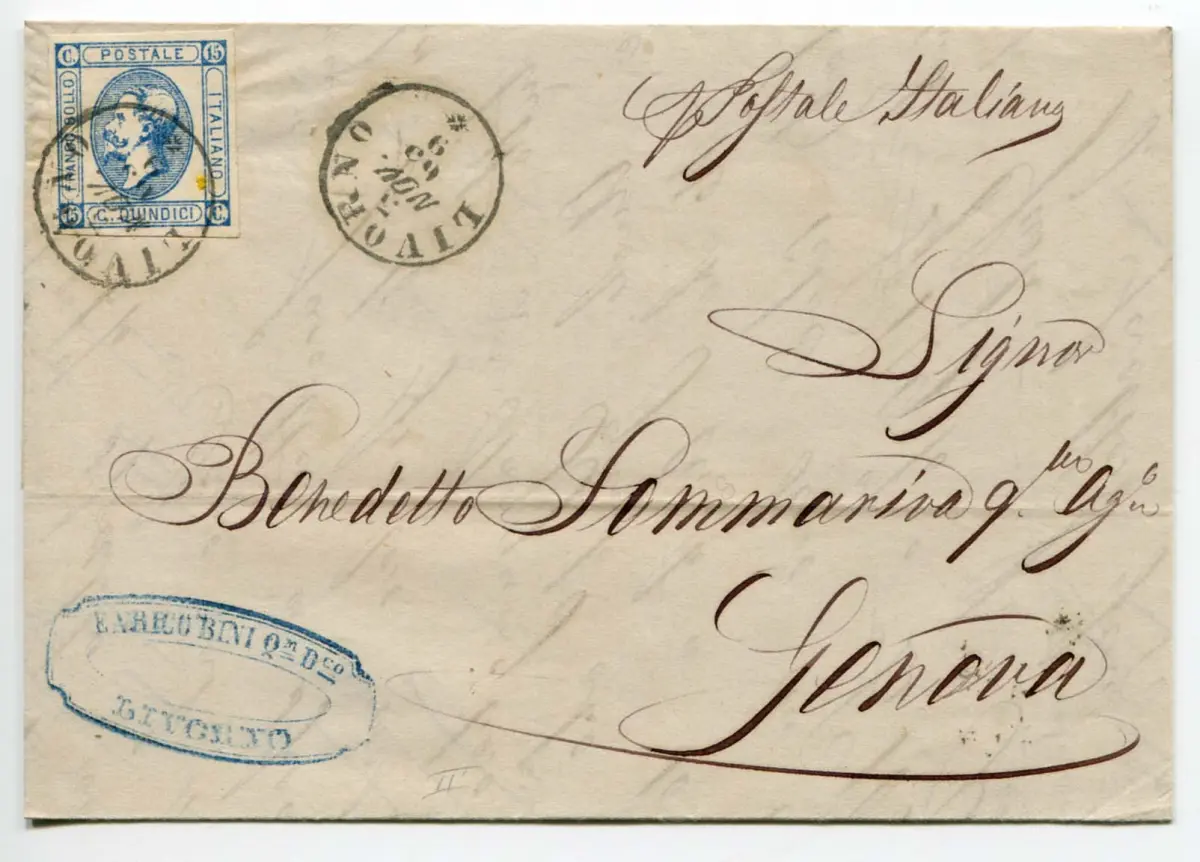 C. POSTALE 15
FRANCO BOLLO
ITALIANO
15 C. QUINDICI C.
LIVORNO
LIVORNO
NOV.
63
p Postale Italiano
Signor
Benedetto Sommariva q.
Genova
ENRICO BINI Qm Dco
LIVORNO
II